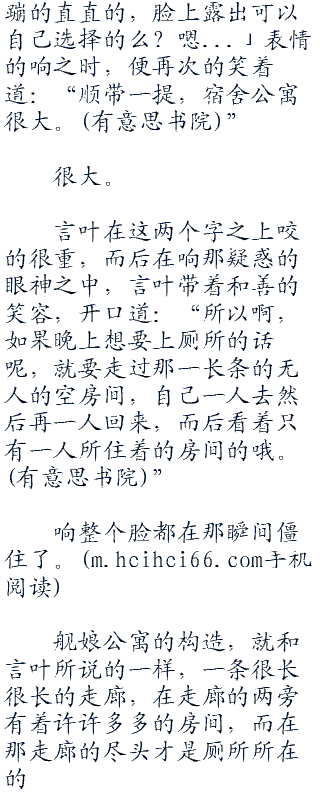 蹦的直直的，脸上露出可以
自己选择的么？嗯...」表情
的响之时，便再次的笑着
道：“顺带一提，宿舍公寓
很大。(有意思书院)”
很大。
言叶在这两个字之上咬
的很重，而后在响那疑惑的
眼神之中，言叶带着和善的
笑容，开口道：“所以啊，
如果晚上想要上厕所的话
呢，就要走过那一长条的无
人的空房间，自己一人去然
后再一人回来，而后看着只
有一人所住着的房间的哦。
(有意思书院)”
响整个脸都在那瞬间僵
住了。(m.hcihci66.com手机
阅读)
舰娘公寓的构造，就和
言叶所说的一样，一条很长
很长的走廊，在走廊的两旁
有着许许多多的房间，而在
那走廊的尽头才是厕所所在
的